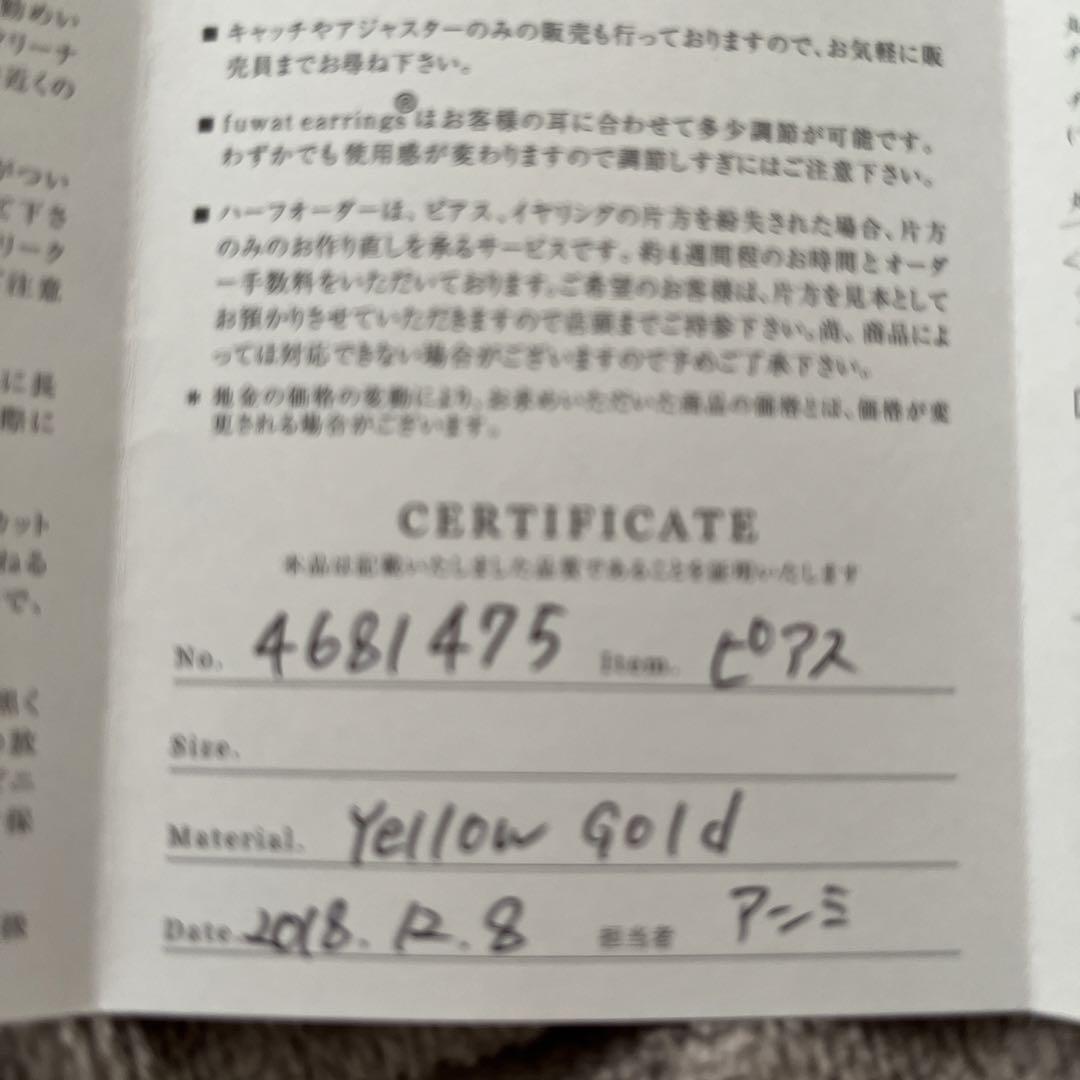 ■ キャッチやアジャスターのみの販売も行っておりますので、お気軽に販
売員までお尋ね下さい。
■ fuwat earrings®はお客様の耳に合わせて多少調節が可能です。
わずかでも使用感が変わりますので調節しすぎにはご注意下さい。
■ ハーフオーダーは、ピアス、イヤリングの片方を紛失された場合、片方
のみのお作り直しを承るサービスです。約4週間程のお時間とオーダ
ー手数料をいただいております。ご希望のお客様は、片方を見本として
お預かりさせていただきますので店頭までご持参下さい。尚、商品によ
っては対応できない場合がございますので予めご了承下さい。
* 地金の価格の変動により、お求めいただいた商品の価格とは、価格が変
更される場合がございます。
CERTIFICATE
本品は記載いたしました品質であることを証明いたします
No. 4681475 Item. ピアス
Size.
Material. Yellow Gold
Date. 2018.12.8 担当者 アンミ
勧めい
クリーナ
近くの
がつい
て下さ
リーク
注意
に長
際に
カット
ねる
で、
黒く